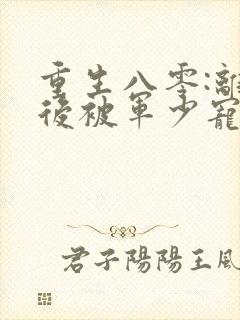 重生八零:離
後被軍少寵
君子陽陽王風